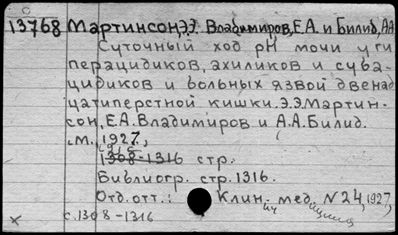 13768 Мартинсон,Э.Э. Владимиров,Е.А. и Билид,АА
Суточный ход pH мочи у ги
перацидиков, ахиликов и суба-
цидиков и больных язвой двенад
цатиперстной кишки. Э.Э.Мартин-
сон, Е.А.Владимиров и А.А.Билид.
М., 1927,
1308-1316 стр.
Библиогр. стр.1316.
Отд.отт.: Клин. мед. N24, 1927,
с.1308-1316